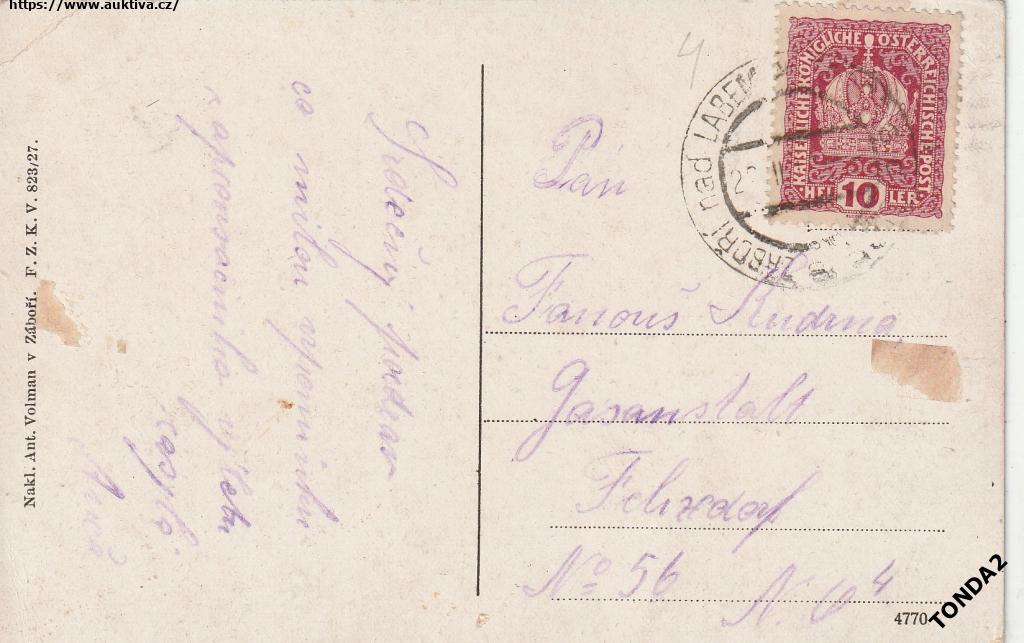 https://www.auktiva.cz/
Nakl. Ant. Volman v Záboří. F. Z. K. V. 823/27.
Srdečný pozdrav
co milou vzpomínku
výletu
4
KAISERLICHE KÖNIGLICHE ÖSTERREICHISCHE POST
HELLER
10
ZÁBOŘÍ nad LABEM
Pán
Fanouš Kudrna
Gasanstalt
Felixdorf
No 56
N.
4
4770
TONDA2